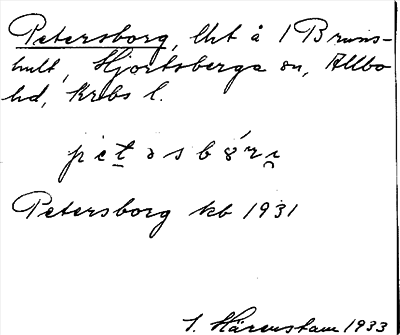 Petersborg, lht å 1 Bruns-
hult, Hjortsberga sn, Allbo
hd, Krbs l.
petəsbǿrı̯
Petersborg kb 1931
S. Härenstam 1933